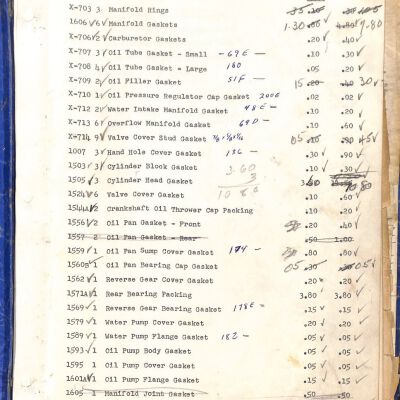 X-703 3 Manifold Rings
1606 √ 6 √ Manifold Gaskets 1.30 9.80
X-706 √ 2 √ Carburetor Gaskets .20 √ .40 √
X-707 3 √ Oil Tube Gasket - Small - 69E - .10 .30 √
X-708 4 √ Oil Tube Gasket - Large 180 .05 .20 √
X-709 2 √ Oil Filler Gasket 51F - 15 30 √
X-710 1 √ Oil Pressure Regulator Cap Gasket 200E .02 √ .02 √
X-712 2 √ Water Intake Manifold Gasket 48E - .10 .20 √
X-713 6 √ Overflow Manifold Gasket 69D - .10 .60 √
X-714 9 √ Valve Cover Stud Gasket 05 45 √
1007 3 √ Hand Hole Cover Gasket 136 - .30 √ .90 √
1503 √ 3 √ Cylinder Block Gasket 3.60 .10 .30 √
1505 √ 3 Cylinder Head Gasket 3 3.60 10.80
1524 6 Valve Cover Gasket 10 80 .10 .60 √
1544 2 Crankshaft Oil Thrower Cap Packing .10 .20 √
1556 √ 2 Oil Pan Gasket - Front .20 .40 √
1557 2 Oil Pan Gasket - Rear .50 1.00
1559 √ 1 Oil Pan Sump Cover Gasket 174 - .80 .80 √
1560 1 Oil Pan Bearing Cap Gasket 05 .30 05 √
1562 √ 1 Reverse Gear Cover Gasket .20 √ .20 √
1571A 1 Rear Bearing Packing 3.80 √ 3.80 √
1569 √ 1 Reverse Gear Bearing Gasket 178E - .15 √ .15 √
1579 √ 1 Water Pump Cover Gasket .20 √ .20 √
1589 √ 1 Water Pump Flange Gasket 182 - .05 √ .05 √
1593 √ 1 Oil Pump Body Gasket .05 √ .05 √
1595 1 Oil Pump Cover Gasket .05 √ .05 √
1601A √ 1 Oil Pump Flange Gasket .15 √ .15 √
1605 1 Manifold Joint Gasket .50 .50